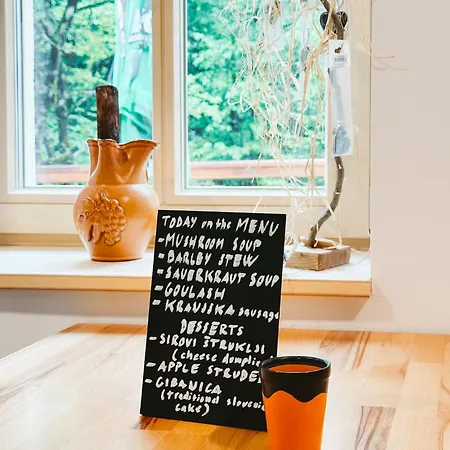 TODAY on the MENU
- MUSHROOM SOUP
- BARLEY STEW
- SAUERKRAUT SOUP
- GOULASH
- KRAVSSKA sausage
DESSERTS
- SIROVI ŠTRUKLJI
(cheese dumplin
- APPLE STRUDEL
- GIBANICA
(traditional slovenia
cake)